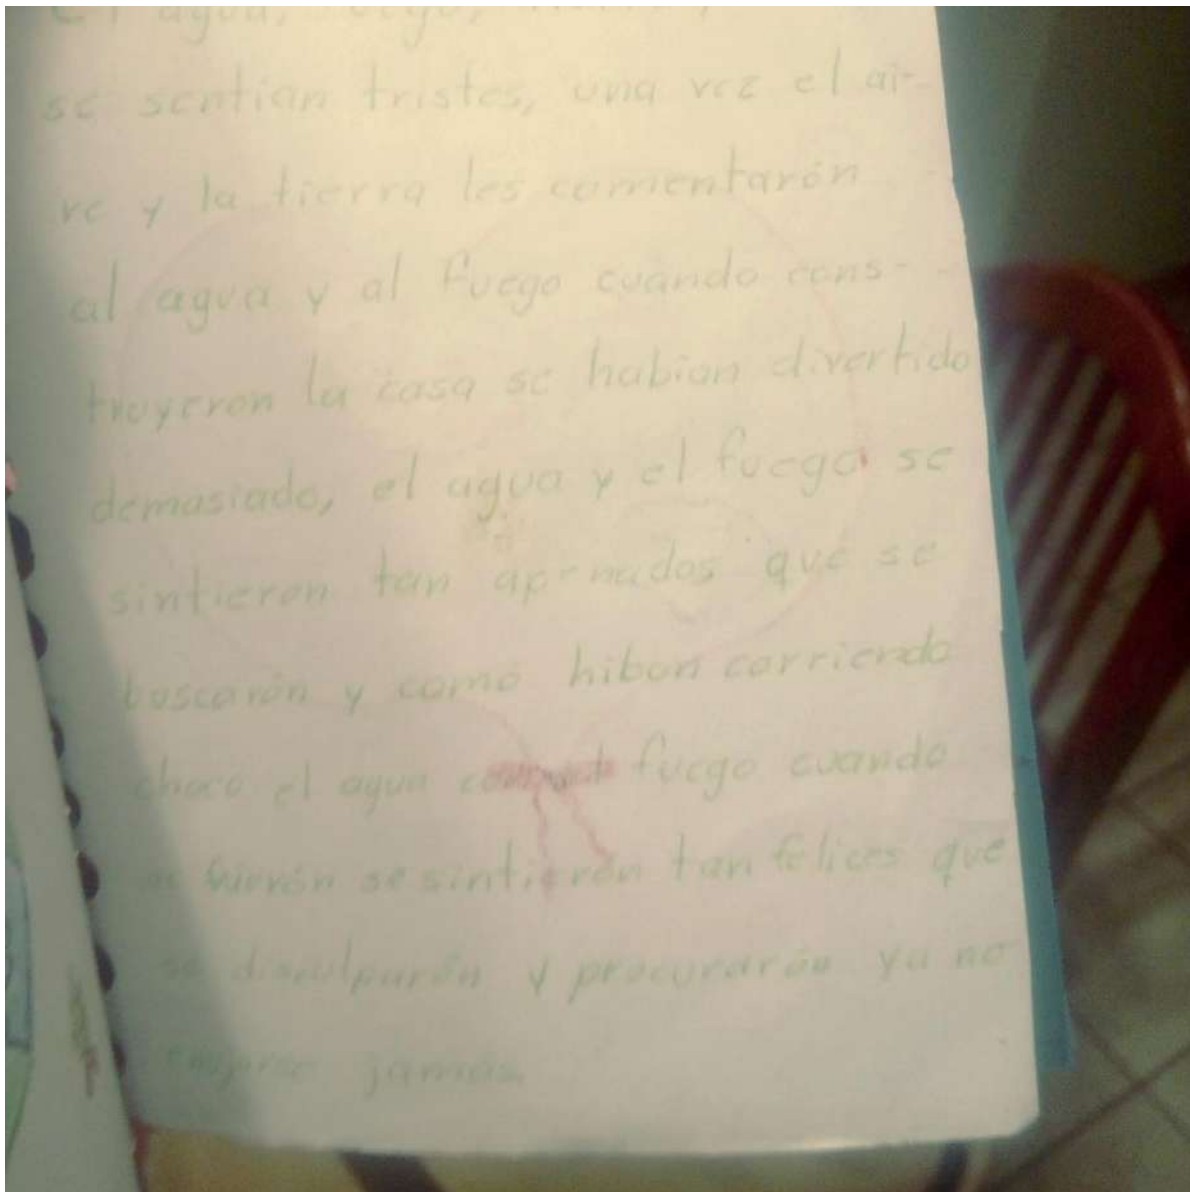 El agua, fuego,
se sentian tristes, una vez el ai-
re y la tierra les comentarón
al agua y al fuego cuando cons-
truyeron la casa se habian divertido
demasiado, el agua y el fuego se
sintieron tan apenados que se
buscarón y como hiban corriendo
choco el agua con el fuego cuando
se hierón se sintierón tan felices que
se disculparón y procurarón ya no
jamás.